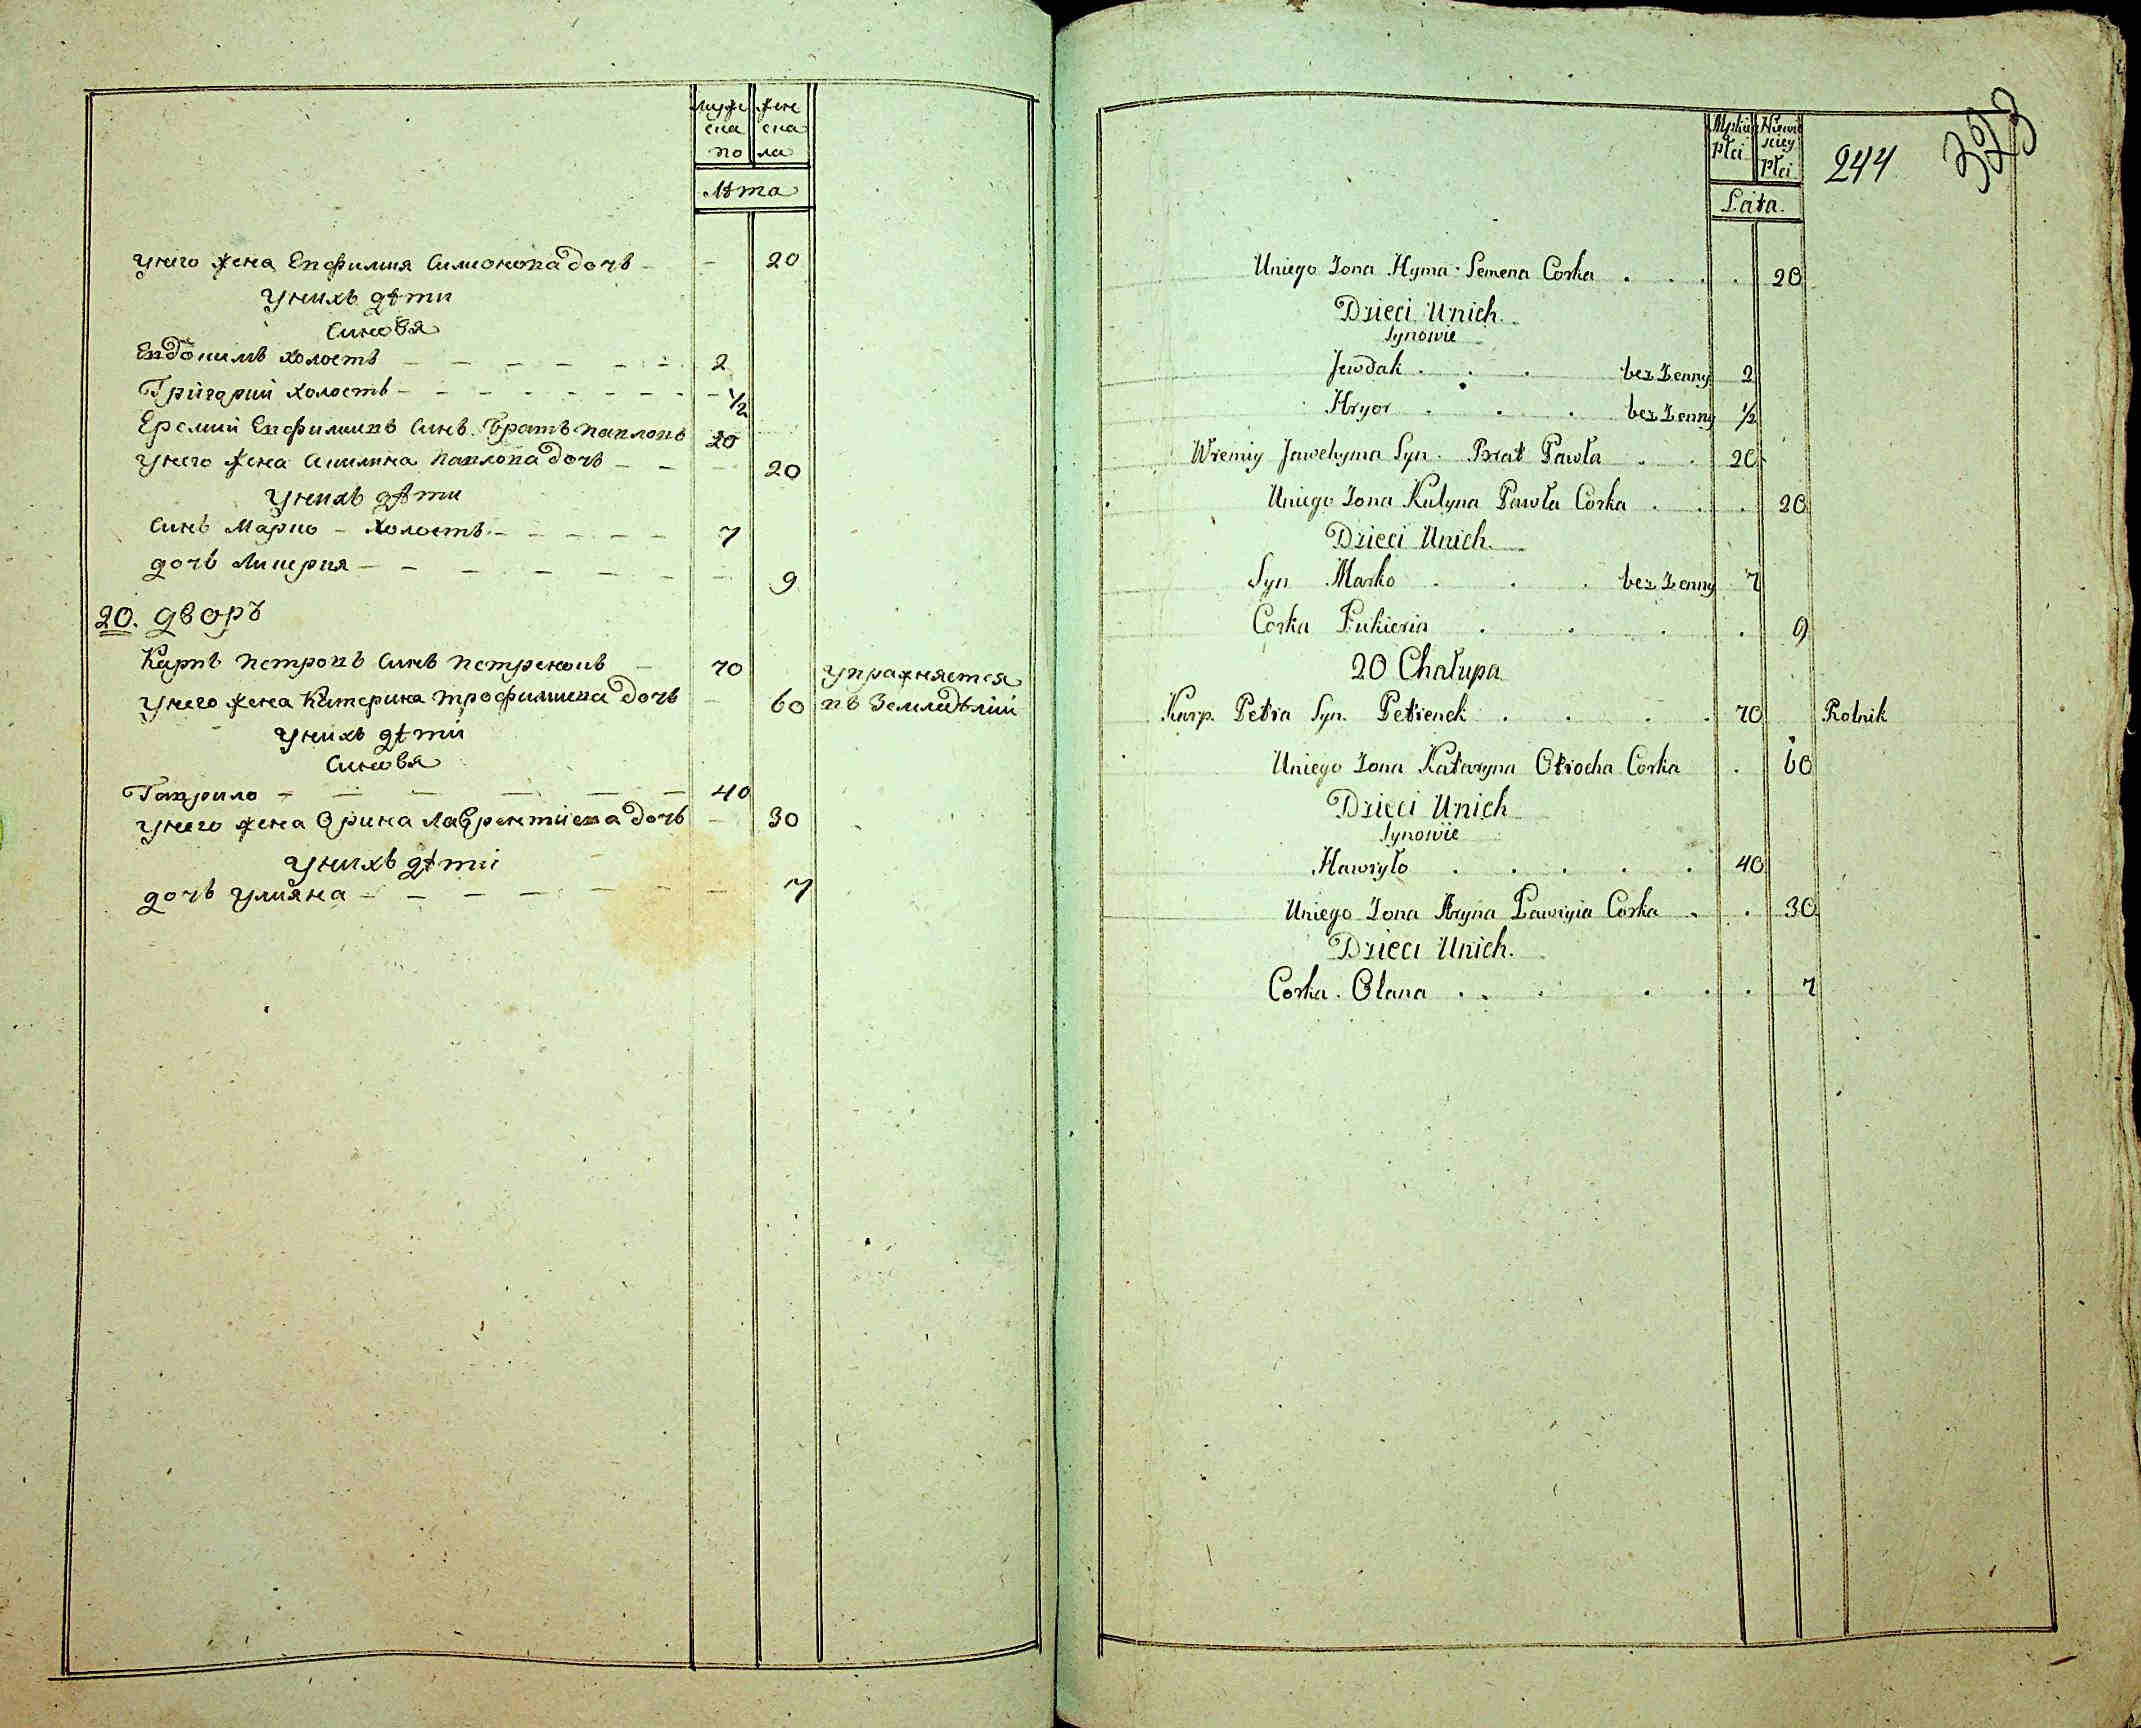 муже
ска
по
жен
ска
ла
Лѣта
у него жена Евфимия Симонова дочь - 20
у нихъ дѣти
синовя
Евдокимъ холостъ 2
Григорий холостъ 1/2
Еремий Евфимиивъ синъ. братъ павловъ 20
у него жена Акилина павлова дочь 20
у нихъ дѣти
синъ Марко - холостъ 7
дочь Ликерия 9
20. дворъ
Карпъ петровъ синъ петренковъ 70 упражняется
у него жена Катерина трофимиева дочь 60 въ земледѣлии
у нихъ дѣти
синовя
Гаврило 40
у него жена Орина Лаврентиева дочь 30
у нихъ дѣти
дочь Улияна 7
244
323
Płci
Płci
Lata.
Uniego Zona Hyma Semena Corka . . . 20
Dzieci Unich.
Synowie
Jewdak . . . bez Zenny 2
Hryor . . . bez Zenny 1/2
Wremiy Jawchyma Syn. Brat Pawła . . 20
Uniego Zona Kulyna Pawła Corka . . . 20
Dzieci Unich.
Syn Marko . . . bez Zenny 7
Corka Łukieria . . . . . 9
20 Chałupa
Karp. Petra Syn. Petrenek . . . . 70 Rolnik
Uniego Zona Kataryna Otrocha Corka . 60
Dzieci Unich
Synowie
Hawryło . . . . . 40
Uniego Zona Aryna Ławryia Corka . . 30
Dzieci Unich.
Corka. Olana . . . . . . 7